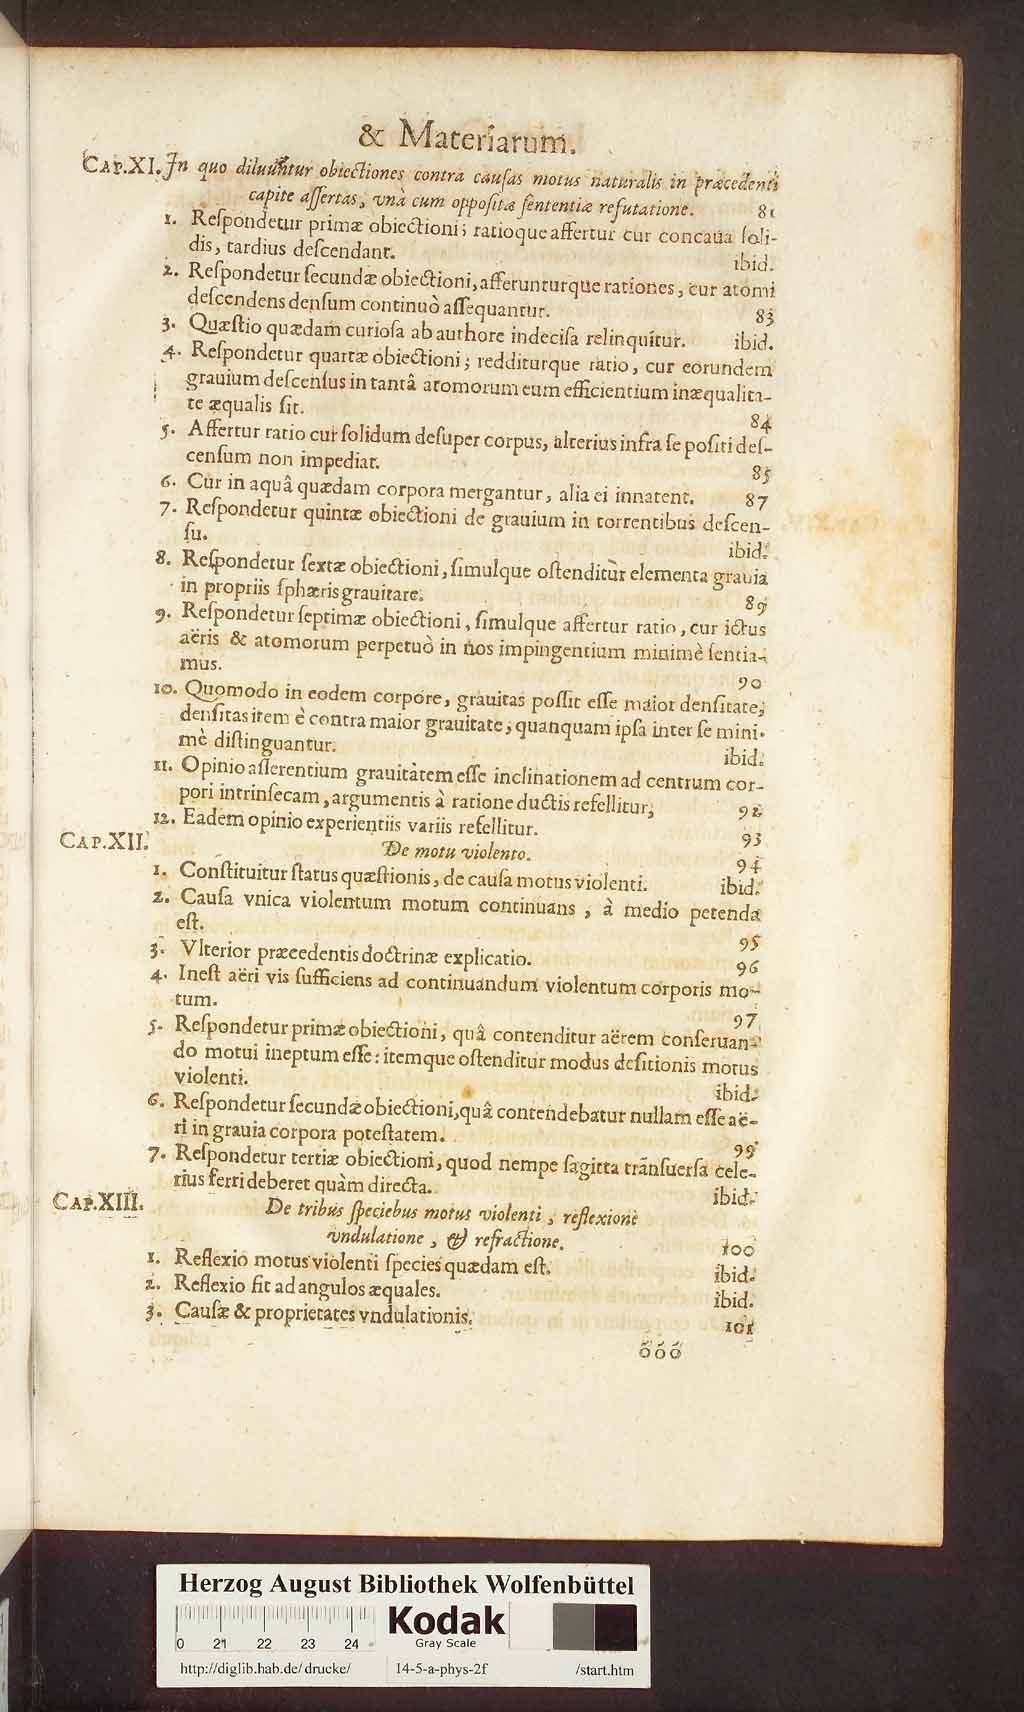 & Materiarum.
CAP.XI. In quo diluuntur obiectiones contra causas motus naturalis in præcedenti
capite aſſertas, vnà cum oppoſitæ ſententiæ refutatione. 81
1. Reſpondetur primæ obiectioni; ratioque affertur cur concaua ſoli-
dis, tardius deſcendant. ibid.
2. Reſpondetur ſecundæ obiectioni, afferunturque rationes, cur atomi
deſcendens denſum continuò aſſequantur. 83
3. Quæſtio quædam curioſa ab authore indeciſa relinquitur. ibid.
4. Reſpondetur quartæ obiectioni; redditurque ratio, cur eorundem
grauium deſcenſus in tantâ atomorum eum efficientium inæqualita-
te æqualis ſit. 84
5. Affertur ratio cur ſolidum deſuper corpus, alterius infra ſe poſiti deſ-
cenſum non impediat. 85
6. Cur in aquâ quædam corpora mergantur, alia ei innatent. 87
7. Reſpondetur quintæ obiectioni de grauium in torrentibus deſcen-
ſu. ibid.
8. Reſpondetur ſextæ obiectioni, ſimulque oſtenditur elementa grauia
in propriis ſphæris grauitare. 89
9. Reſpondetur ſeptimæ obiectioni, ſimulque affertur ratio, cur ictus
aëris & atomorum perpetuò in nos impingentium minimè ſentia-
mus. 90
10. Quomodo in eodem corpore, grauitas poſſit eſſe maior denſitate;
denſitas item è contra maior grauitate, quanquam ipſa inter ſe mini-
mè diſtinguantur. ibid.
11. Opinio aſſerentium grauitatem eſſe inclinationem ad centrum cor-
pori intrinſecam, argumentis à ratione ductis refellitur, 92
12. Eadem opinio experientiis variis refellitur. 93
CAP.XII. De motu violento. 94
1. Conſtituitur ſtatus quæſtionis, de cauſa motus violenti. ibid.
2. Cauſa vnica violentum motum continuans, à medio petenda
eſt. 95
3. Vlterior præcedentis doctrinæ explicatio. 96
4. Ineſt aëri vis ſufficiens ad continuandum violentum corporis mo-
tum. 97
5. Reſpondetur primæ obiectioni, quâ contenditur aërem conſeruan-
do motui ineptum eſſe: itemque oſtenditur modus deſitionis motus
violenti. ibid.
6. Reſpondetur ſecundæ obiectioni, quâ contendebatur nullam eſſe aë-
ri in grauia corpora poteſtatem. 99
7. Reſpondetur tertiæ obiectioni, quod nempe ſagitta tranſuerſa cele-
rius ferri deberet quàm directa. ibid.
CAP.XIII. De tribus ſpeciebus motus violenti, reflexione
vndulatione, & refractione. 100
1. Reflexio motus violenti ſpecies quædam eſt. ibid.
2. Reflexio fit ad angulos æquales. ibid.
3. Cauſæ & proprietates vndulationis. 101
ó ó ó
Herzog August Bibliothek Wolfenbüttel
Kodak
Gray Scale
0 21 22 23 24
http://diglib.hab.de/drucke/ 14-5-a-phys-2f /start.htm